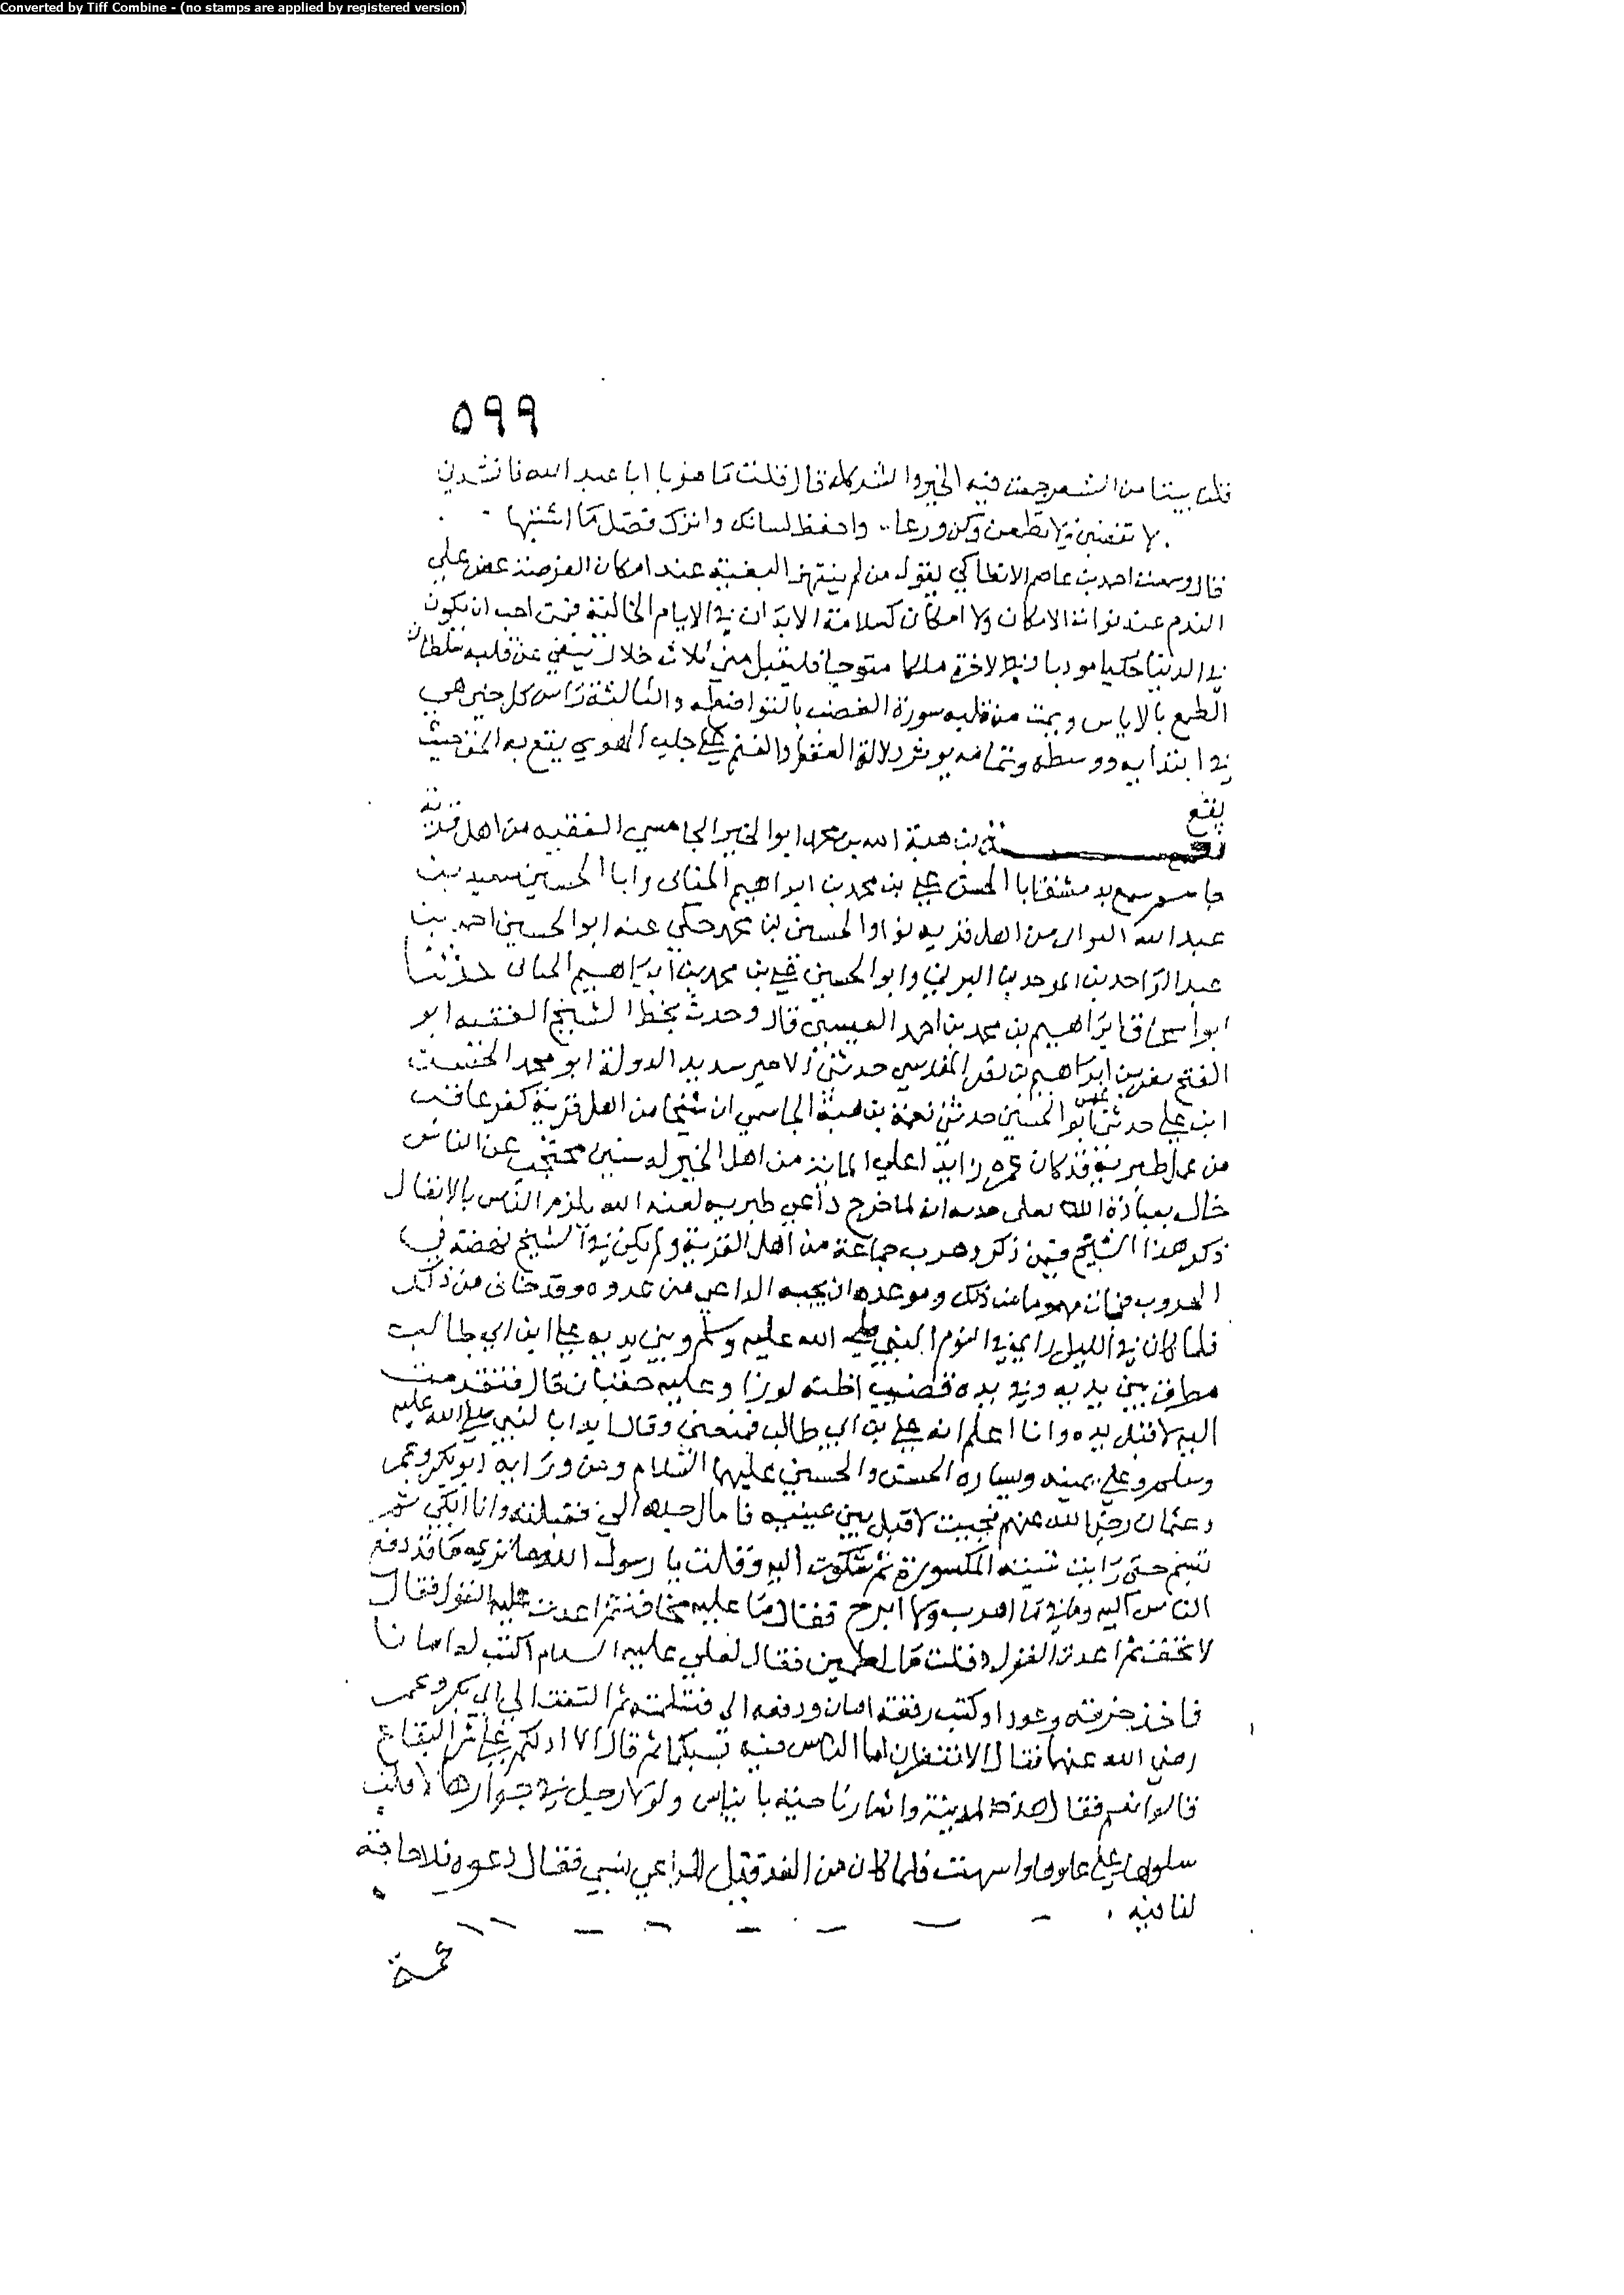 Converted by Tiff Combine - (no stamps are applied by registered version)
٥٩٩
قلت بيتا من الشعر جمعت فيه الخير والشر كله قال قلت ما هو يا ابا عبد الله فانشدني
لا تغضبن ولا تطمعن وكن ورعا واحفظ لسانك واترك فضل
قال وسمعت احمد بن عاصم الانطاكي يقول من لم ينتهز البغية عند امكان الفرصة عض علي
الندم عند فواته الامكان ولا امكان كسلامة الابدان في الايام الخالية فمن احب ان يكون
في الدنيا حكيما مودبا وفي الاخرة ملكا متوجا فليقبل مني ثلاث خلال ينفي عن قلبه سلطان
الطمع بالاياس ويميت من قلبه سورة الغضب بالتواضع لله والثالثة راس كل خير هي
في ابتدايه ووسطه وتمامه يوثر دلالة العقل والفهم علي جلب الهوي يتبع به الحق حيث
يقع
بن هبة الله بن محمد ابو الخير الجاسمي الفقيه من اهل قرية
جاسم سمع بدمشق ابا الحسن علي بن محمد بن ابراهيم الحنائي وابا الحسين سعيد بن
عبد الله من اهل قرية نوا والحسين بن محمد حكي عنه ابو الحسين احمد بن
عبد الواحد بن البري وابو الحسين علي بن محمد بن ابراهيم الحنائي حدثنا
ابو اسحاق ابراهيم بن محمد بن احمد القيسي قال وحدث بخط الشيخ الفقيه ابو
الفتح نصر بن ابراهيم بن نصر المقدسي حدثني الامير سديد الدولة ابو محمد
ابن علي حدثني ابو الحسين حدثني نعمة بن هبة الجاسمي ان شيخا من اهل قرية كفر عاقب
من عمل طبرية قد كان عمره زايد اعلي الماية من اهل الخير له سنين محتجب عن الناس
خال بعبادة الله تعلي حدثه انه لما خرج داعي طبرية لعنه الله يلزم الناس بالانتقال
ذكر هذا الشيخ فيمن ذكر وهرب جماعة من اهل القرية ولم يكن في الشيخ نهضة في
الهروب فبات مهموما من ذلك وموعده ان يجيه الداعي من غدوه وقد خاف من ذلك
فلما كان في الليل راي في النوم النبي صلي الله عليه وسلم وبين يديه علي ابن ابي طالب
مطرق بين يديه وفي يده قضيب اظنه لوزا وعليه خفان قال فتقدمت
اليه لاقبل يده وانا اعلم انه علي بن ابي طالب فمنعني وقال ابدا بالنبي صلي الله عليه
وسلم وعلي يمينه ويساره الحسن والحسين عليهما السلام ومن ورايه ابو بكر وعمر
وعثمان رضي الله عنهم فجيت لاقبل بين عينيه فامال الي فقبلته وانا ابكي ثم
تبسم حتي رايت ثنيته المكسورة ثم شكوت اليه وقلت يا رسول الله ما تري ما قد دفع
الناس اليه وما في ما اهرب ولا ابرح فقال ما عليه مخافة ثم اعدت عليه القول فقال
لا تخف ثم اعدت القول وقلت ما اطمين فقال لعلي عليه السلام اكتب له امانا
فاخذ خرقة وعودا وكتب رقعة امان ودفعه الي فتسلمته ثم التفت الي ابي بكر وعمر
رضي الله عنهما فقال الا تنظران اما الناس فيه ثم قال الا ادلكم علي شر البقاع
قالوا نعم فقال هذه المدينة واشار ناحية بانياس ولولا رجل في جوارها
علي فلما كان من الغد قيل للداعي بسبي فقال دعوه فلا حاجة
لنا فيه